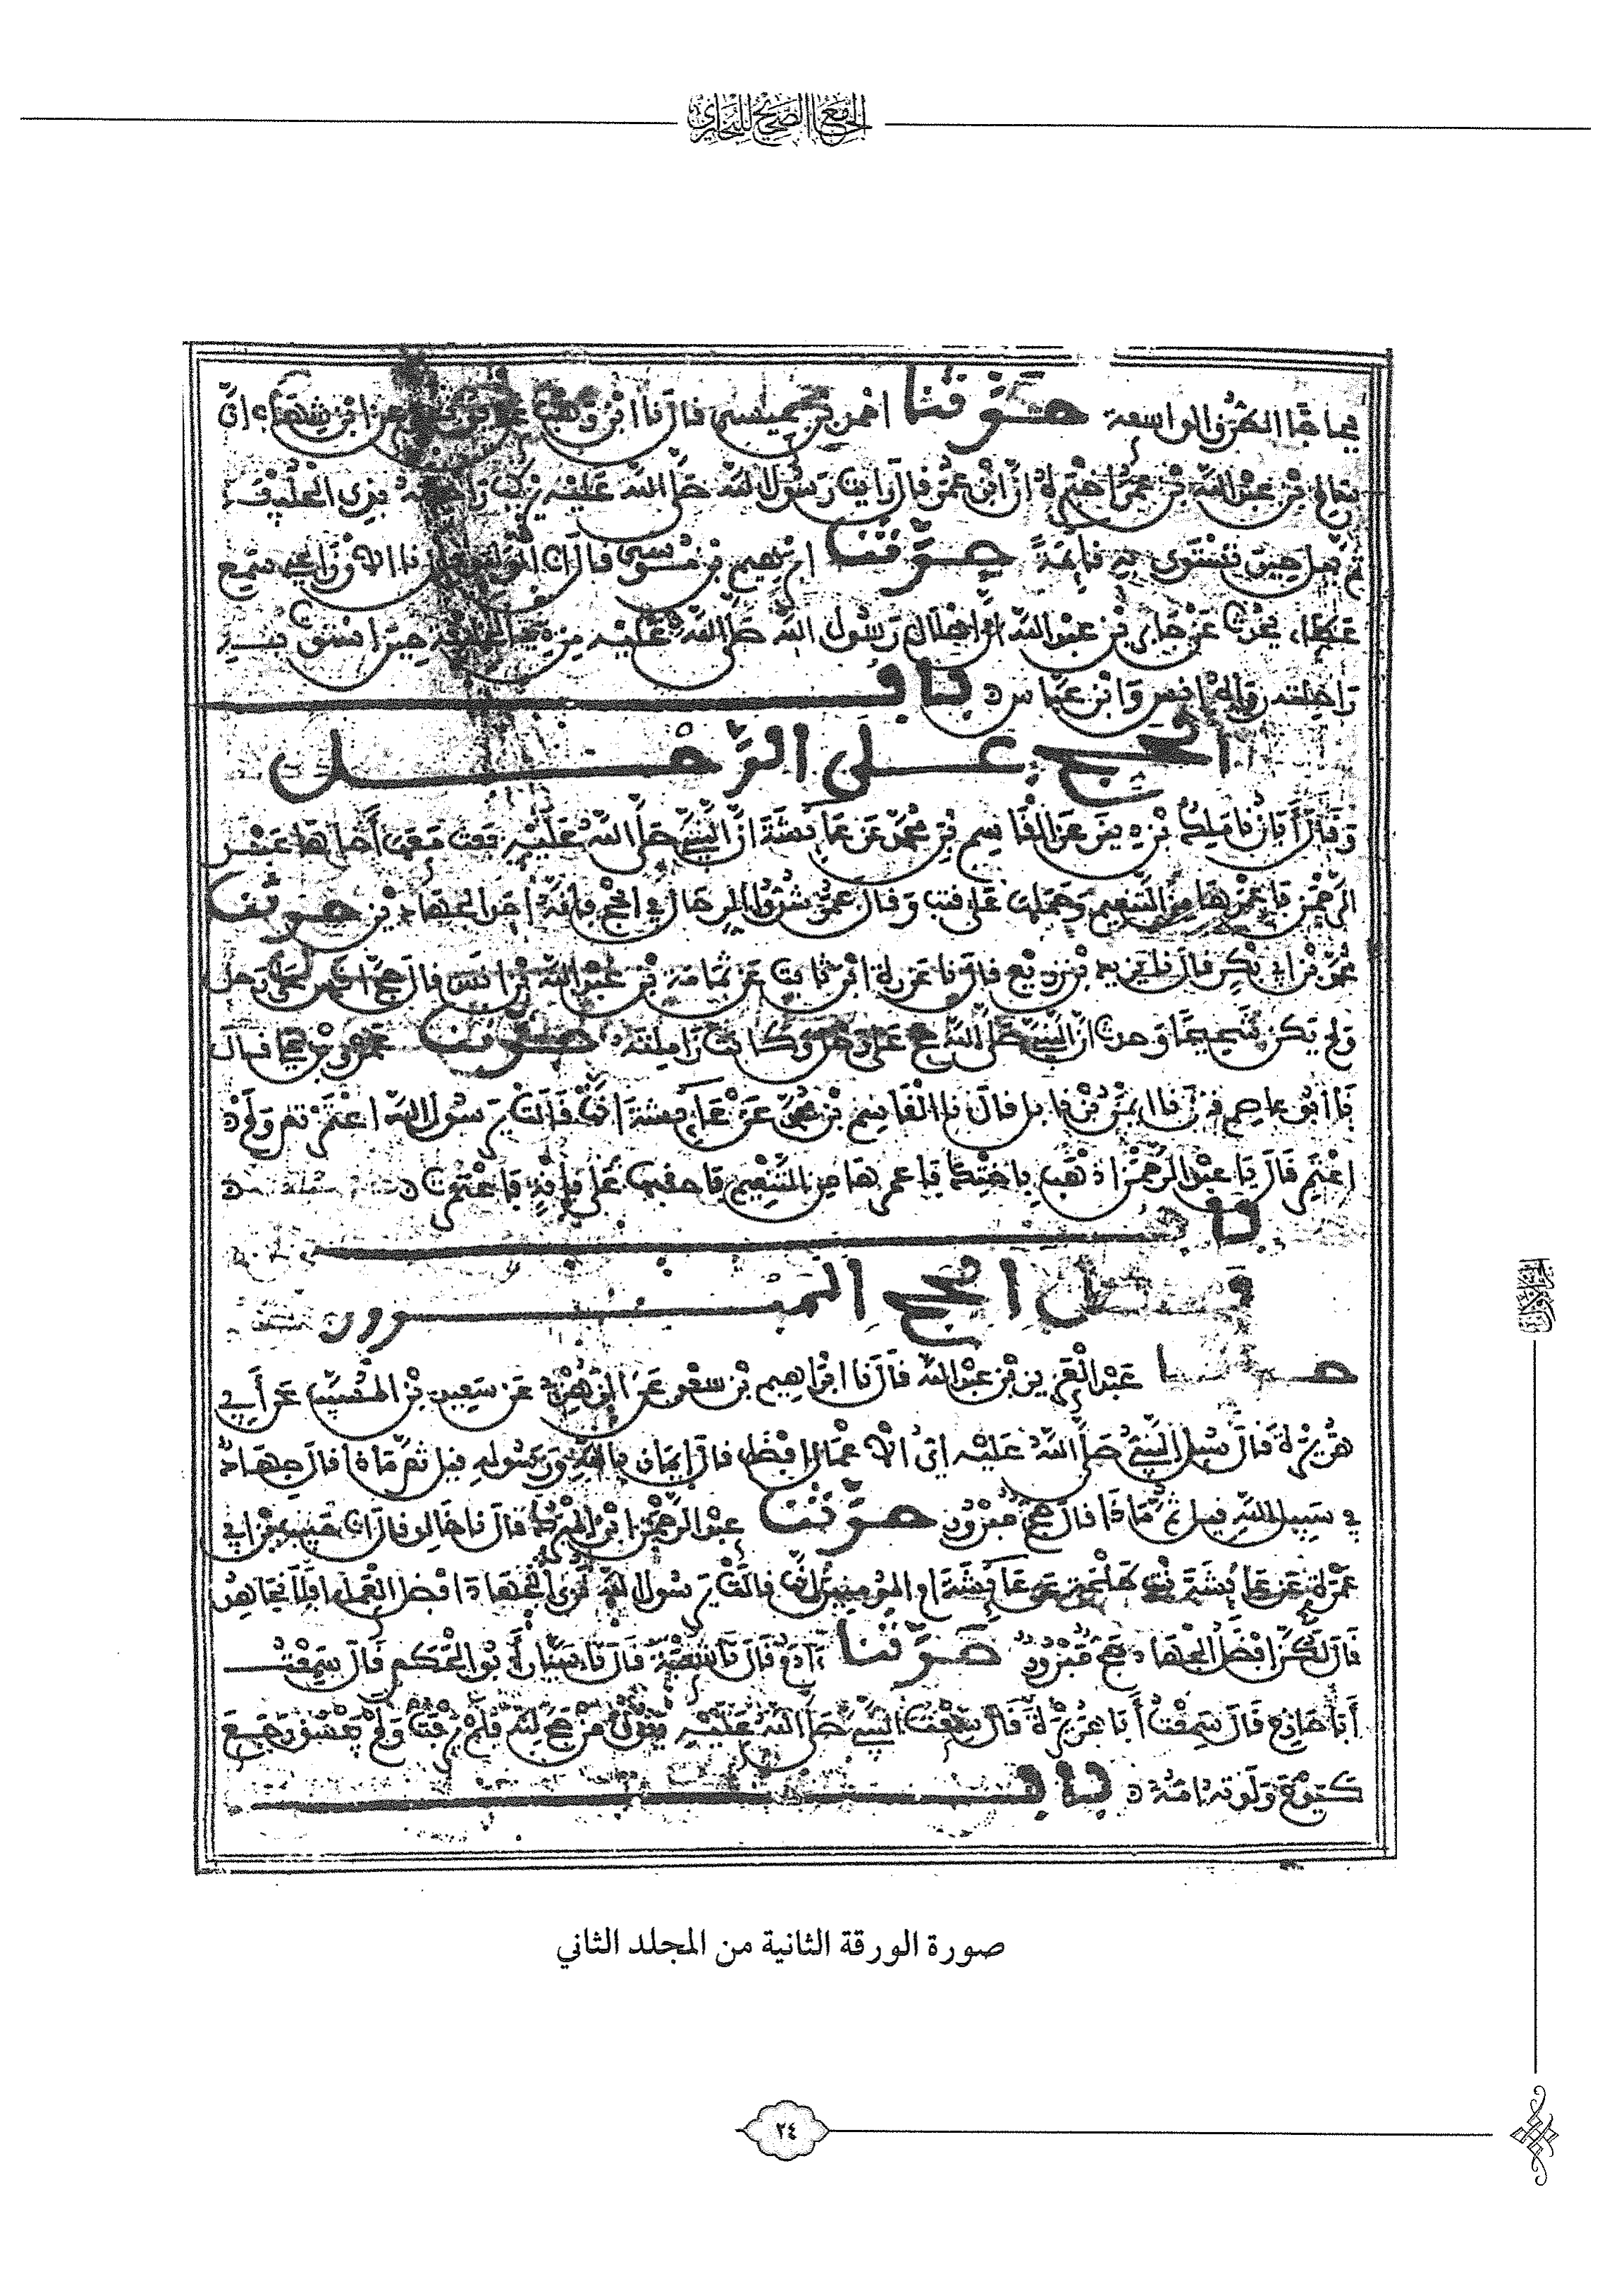 الجامع الصحيح للبخاري
فجاجا الطرق الواسعة حدثنا احمد بن عيسى قال نا ابن وهب عن ابن شهاب ان
سالم بن عبد الله بن عمر اخبره ان ابن عمر قال رايت رسول الله صلى الله عليه يركب راحلته بذي الحليفة
ثم يهل حين تستوي به قائمة حدثنا ابرهيم بن موسى قال انا الوليد قال نا الاوزاعي سمع
عطاء يحدث عن جابر بن عبد الله ان اهلال رسول الله صلى الله عليه من ذي الحليفة حين استوت به
راحلته رواه انس وابن عباس باب
الحج على الرحل
وقال أبان نا ملك بن دينر عن القاسم بن محمد عن عائشة ان النبي صلى الله عليه بعث معها أخاها عبد
الرحمن فاعمرها من التنعيم وحملها على قتب وقال عمر شدوا الرحال في الحج فإنه احد الجهادين حدثنا
محمد بن ابي بكر قال نا يزيد بن زريع قال نا عزرة ابن ثابت عن ثمامة بن عبد الله بن انس قال حج انس على رحل
ولم يكن شحيحا وحدث ان النبي صلى الله حج على رحل وكانت زاملته حدثنا عمرو بن علي قال
نا ابو عاصم نا ايمن بن نابل قال نا القاسم بن محمد عن عائشة انها قالت يرسول الله اعتمرتم ولم
اعتمر قال يا عبد الرحمن اذهب باختك فاعمرها من التنعيم فاحقبها على ناقة فاعتمرت
باب
فضل الحج المبرور
حدثنا عبد العزيز بن عبد الله قال نا ابراهيم بن سعد عن الزهري عن سعيد بن المسيب عن أبي
هريرة قال سئل النبي صلى الله عليه اي الاعمال افضل قال إيمان بالله ورسوله قيل ثم ماذا قال جهاد
في سبيل الله قيل ثم ماذا قال حج مبرور حدثنا عبد الرحمن ابن المبرك قال نا خالد قال انا حبيب بن ابي
عمرة عن عائشة بنت طلحة عن عائشة ام المؤمنين انها قالت يرسول الله نرى الجهاد افضل العمل افلا نجاهد
قال لكن افضل الجهاد حج مبرور حدثنا آدم قال نا شعبة قال نا سيار أبو الحكم قال سمعت
أبا حازم قال سمعت أبا هريرة قال سمعت النبي صلى الله عليه يقول من حج لله فلم يرفث ولم يفسق رجع
كيوم ولدته امه باب
صورة الورقة الثانية من المجلد الثاني
٢٤